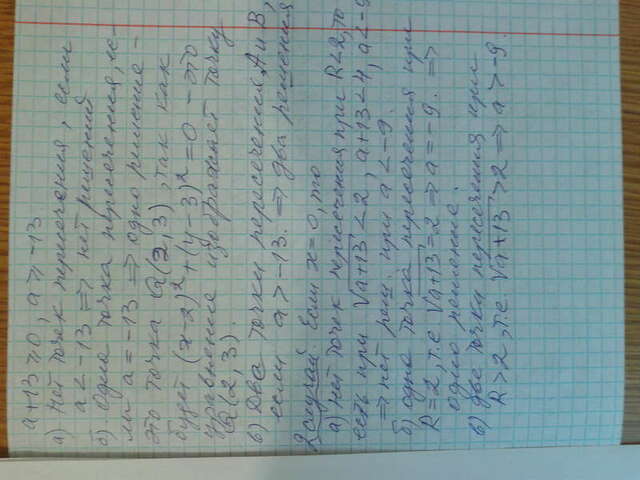 a+13 ≥ 0, a ≥ -13
а) нет точек пересечения, если
a < -13 => нет решений
б) одна точка пересечения, ес-
ли a = -13 => одно решение -
это точка Q(2,3), так как
будет (x-2)²+(y-3)²=0 - это
уравнение изображает точку
Q(2,3).
в) две точки пересечения A и B,
если a > -13. => два решения
2 случай. Если x=0, то
а) нет точек пересечения при R<2, то
есть при √a+13 < 2, a+13<4, a<-9
=> нет реш. при a < -9.
б) одна точка пересечения при
R=2, т.е. √a+13 = 2 => a = -9. =>
одно решение.
в) две точки пересечения при
R>2, т.е. √a+13 > 2 => a > -9.